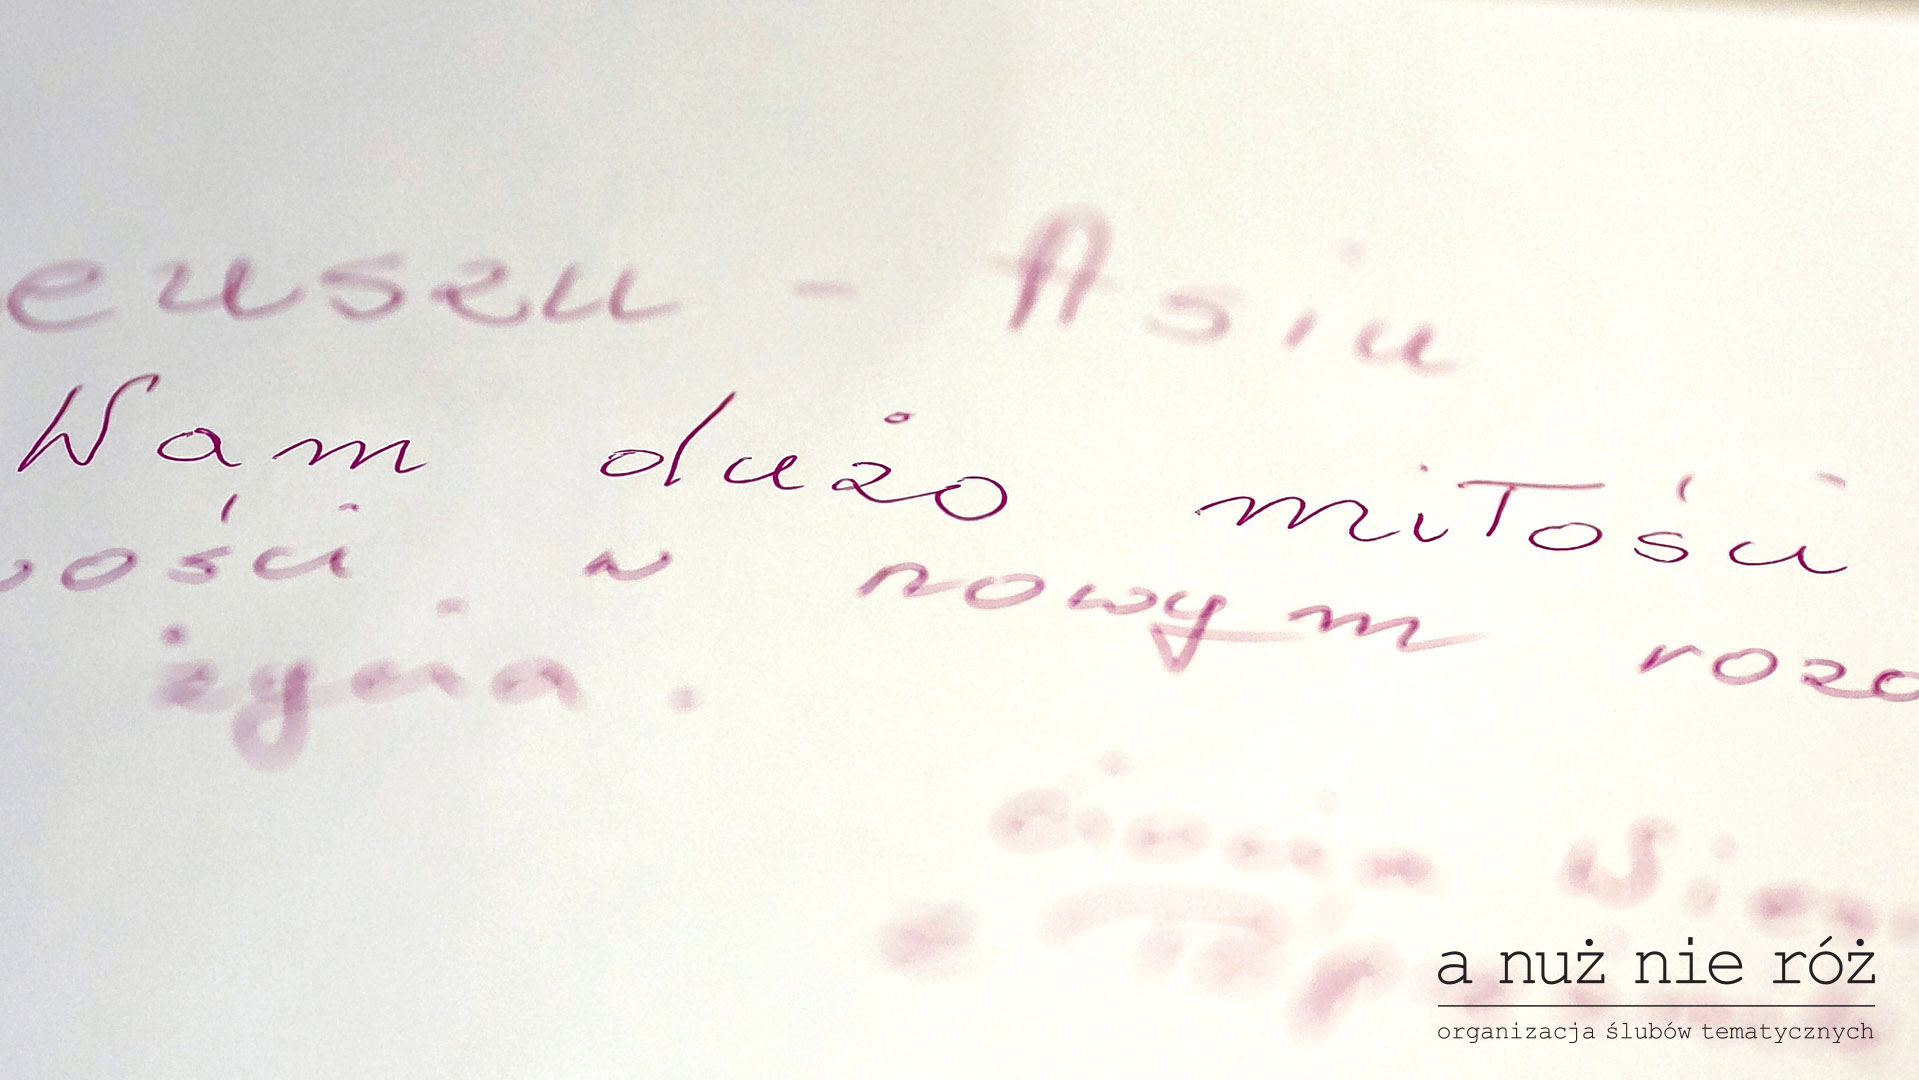 euszu - Asiu
Wam dużo miłości
ości w nowym rozd
życia.
a nuż nie róż
organizacja ślubów tematycznych